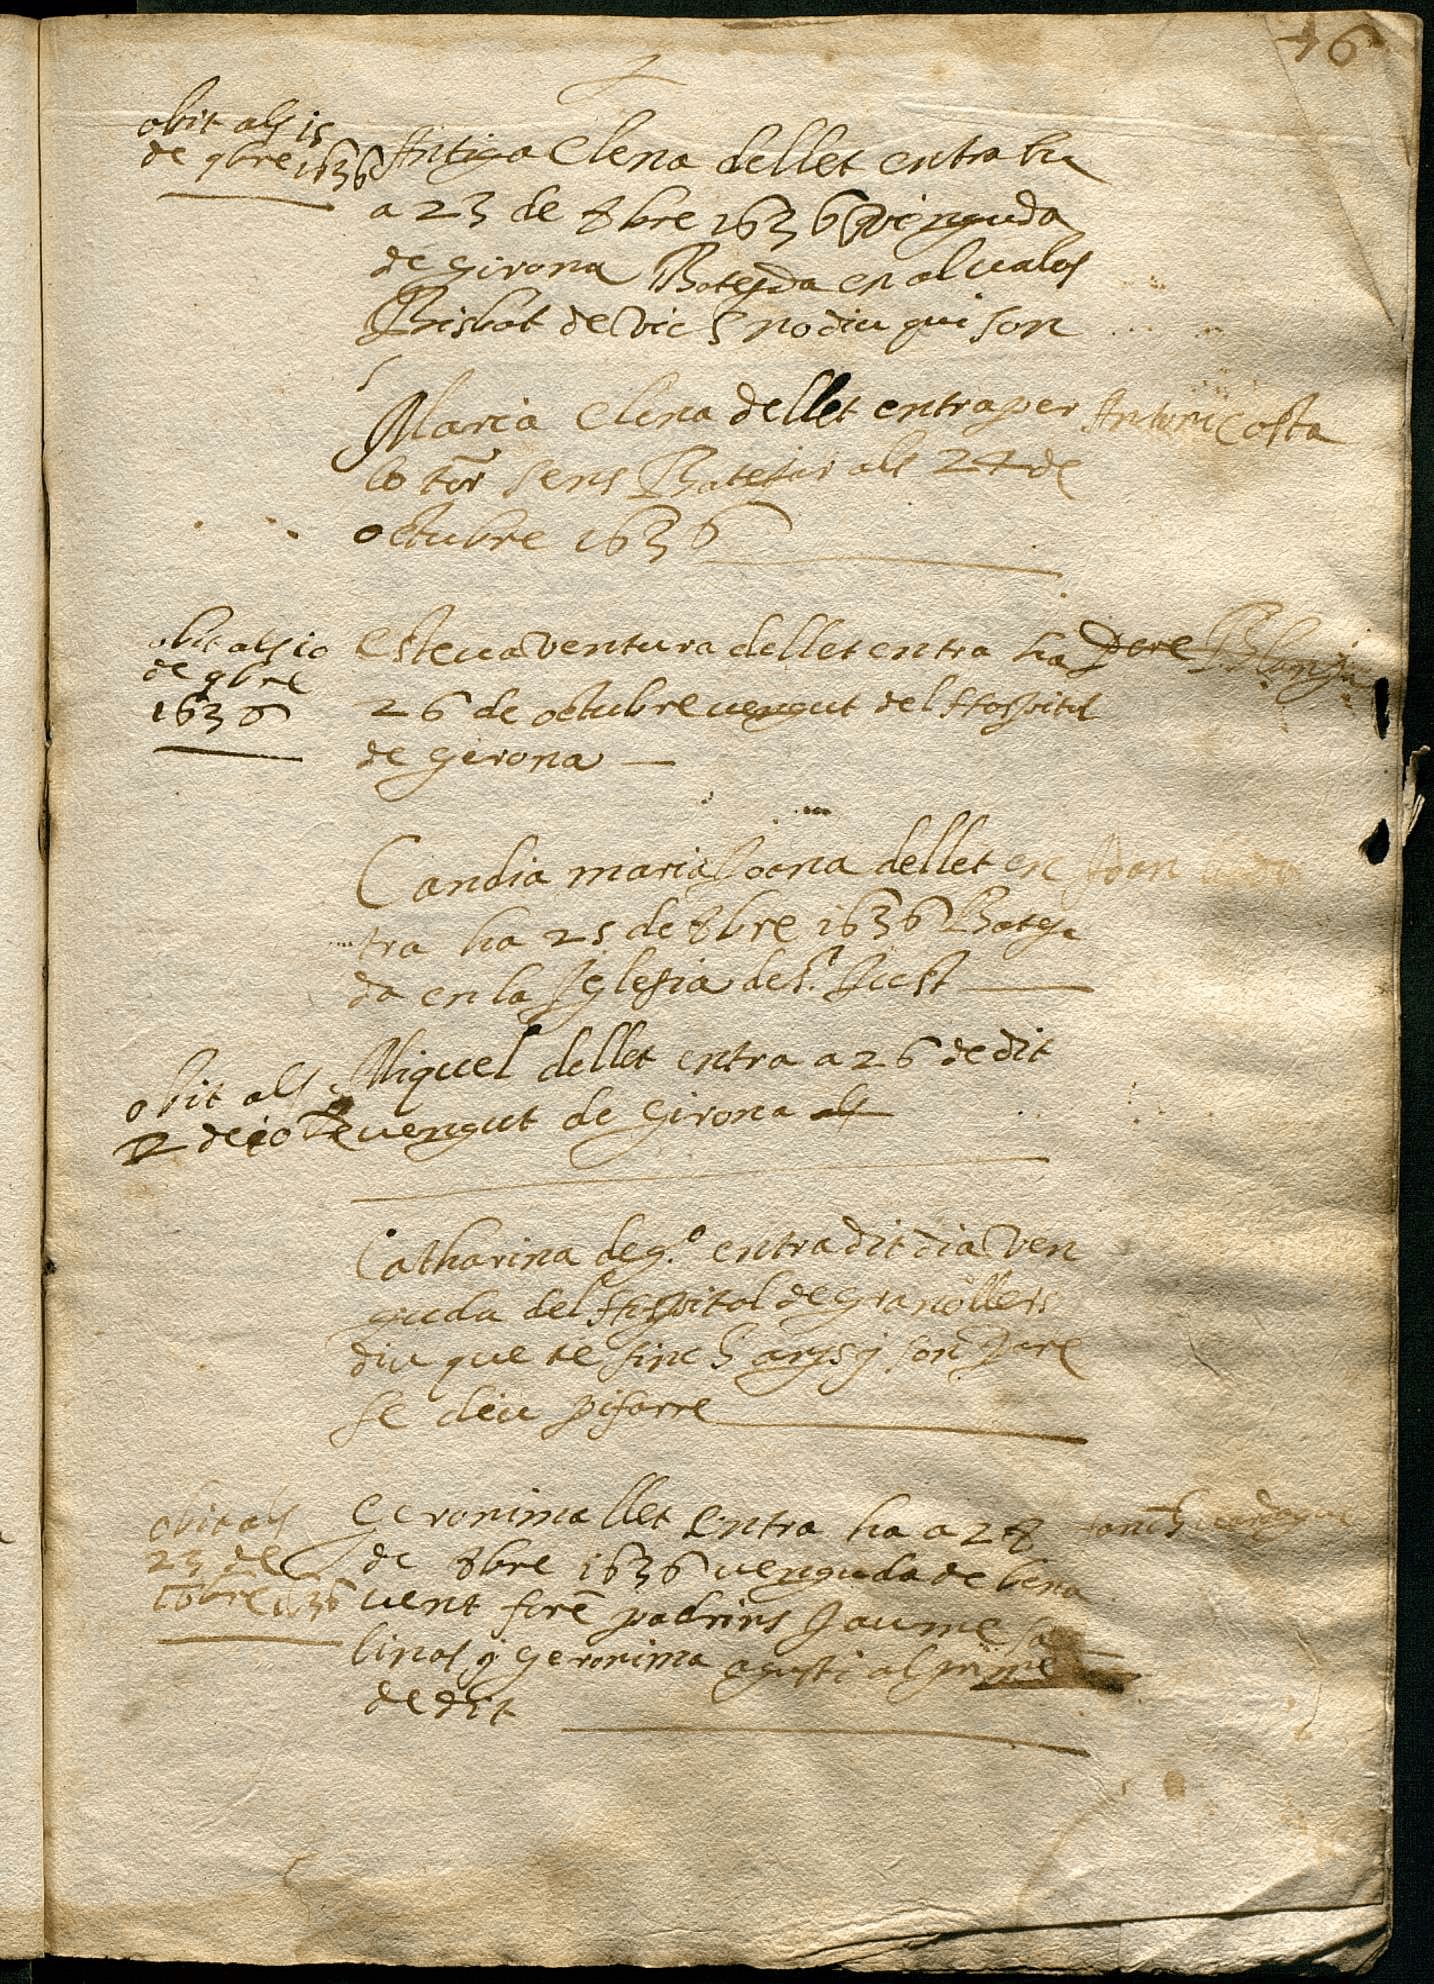 76
obit als 15
de 9bre 1636
Antiga Elena de llet entra ha
a 23 de 8bre 1636 Venguda
de Girona Batejada en al
Bisbat de Vich no diu qui son
Maria Elena de llet entra per
Antoni Costa
lo torn sens Batejar als 24 de
octubre 1636
obit als 10
de 9bre
1636
Esteva Ventura de llet entra ha
Pere
26 de octubre vengut del Hospital
de Girona
Candia maria Joana de llet en
Joan
tra ha 25 de 8bre 1636 Bateja
da en la Iglesia de St. Just
Miquel de llet entra a 26 de dit
vengut de Girona
obit als
Catharina de g.º entra dit dia Ven
guda del Hospital de Granollers
diu que te sinch anys y son Pare
se deu pifarre
obit als
23 de
1636
Geronima llet Entra ha a 28
de 8bre 1636 venguda de bena
vent foren padrins Jaume Sa
linas y Geronima agusti al
de dit